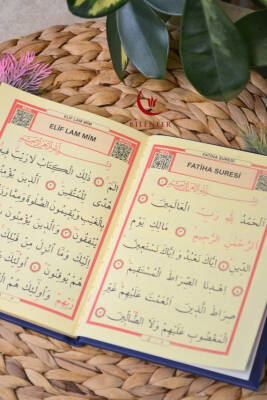 BİLENLER
FATİHA SURESİ
FATİHA SURESİ
الْحَمْدُ لِلّٰهِ رَبِّ الْعَالَمِينَ
الرَّحْمٰنِ الرَّحِيمِ مَالِكِ يَوْمِ
الدِّينِ اِيَّاكَ نَعْبُدُ وَاِيَّاكَ نَسْتَعِينُ
اِهْدِنَا الصِّرَاطَ الْمُسْتَقِيمَ
صِرَاطَ الَّذِينَ اَنْعَمْتَ عَلَيْهِمْ غَيْرِ
الْمَغْضُوبِ عَلَيْهِمْ وَلَا الضَّالِّينَ
ELİF LAM MİM
الٓمٓ ذٰلِكَ الْكِتَابُ لَا رَيْبَ فِيهِ
هُدًى لِلْمُتَّقِينَ اَلَّذِينَ يُؤْمِنُونَ
بِالْغَيْبِ وَيُقِيمُونَ الصَّلٰوةَ وَمِمَّا رَزَقْنَاهُمْ
يُنْفِقُونَ وَالَّذِينَ يُؤْمِنُونَ بِمَا
اِلَيْكَ وَمَا اُنْزِلَ مِنْ قَبْلِكَ
هُمْ يُوقِنُونَ اُولٰئِكَ
رَبِّهِمْ وَاُولٰئِكَ هُمُ